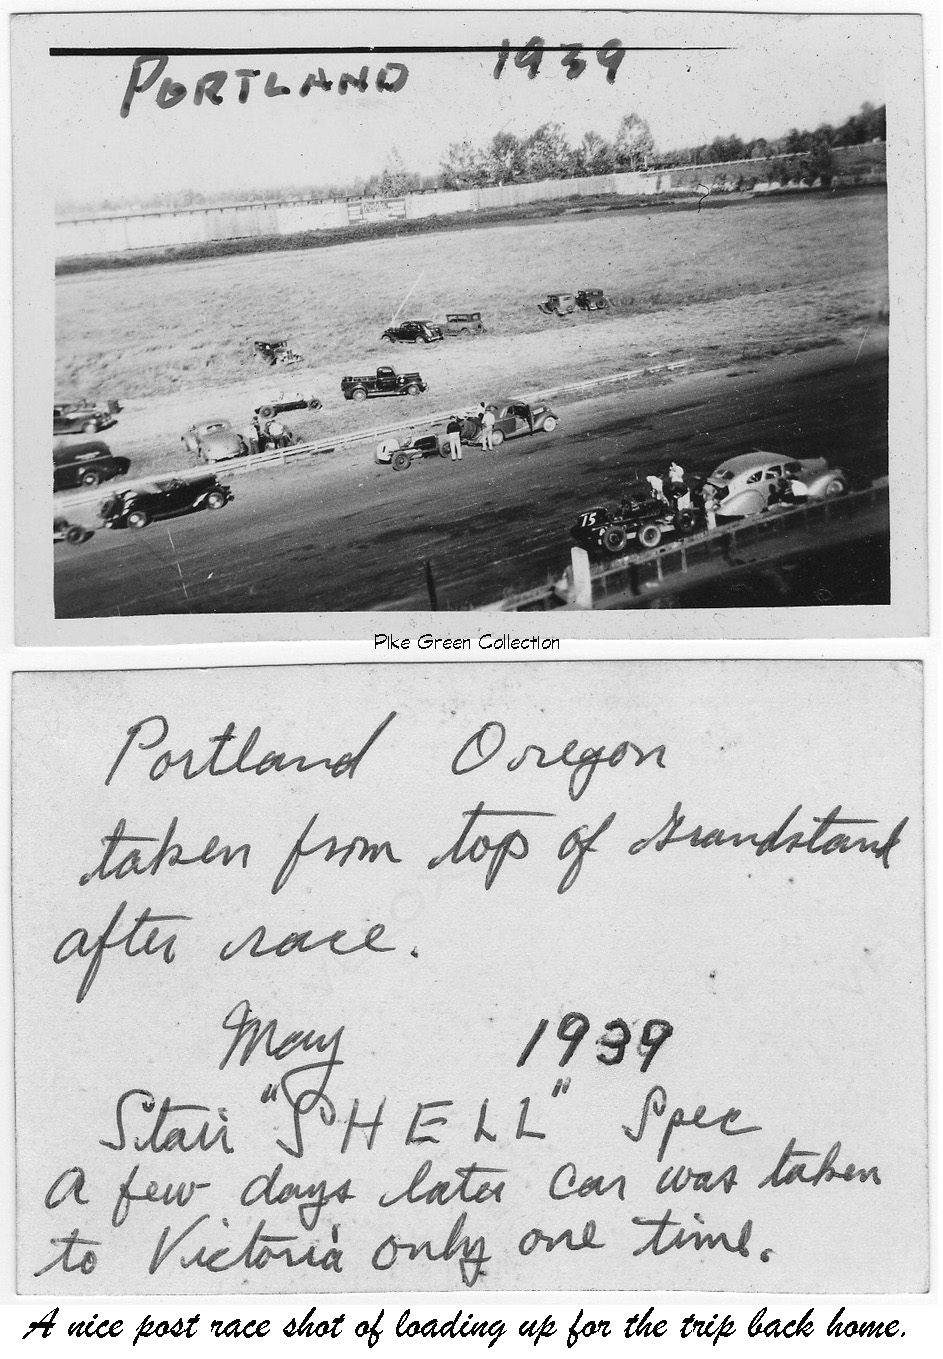 PORTLAND 1939
75
Pike Green Collection
Portland Oregon
taken from top of Grandstand
after race.
May 1939
Stair "SHELL" Spec
A few days later car was taken
to Victoria only one time.
A nice post race shot of loading up for the trip back home.